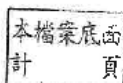 本檔案底面
計　　頁